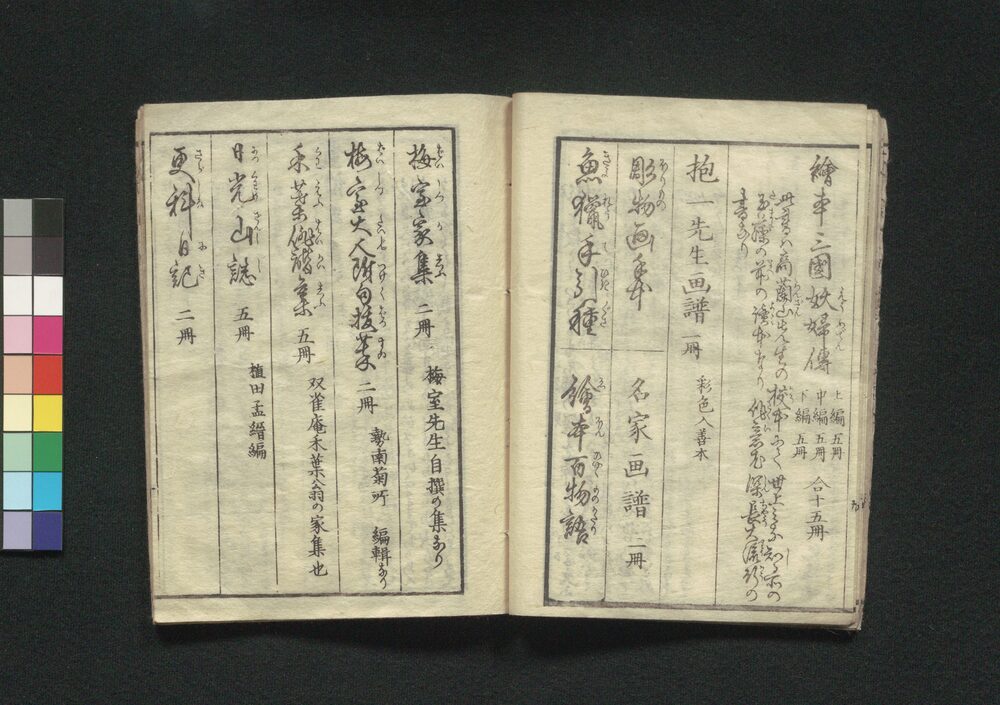 繪本三國妖婦傳 上編五冊 中編五冊 下編五冊 合十五冊
此書ハ高蘭山先生の校本にて世上に知る所の
玉藻の前の讀本なり
書なり
抱一先生画譜 一冊 彩色入善本
彫物画手本 名家画譜 一冊
魚猟手引種 繪本百物語
梅室家集 二冊 梅室先生自撰の集なり
梅室大人附句抜萃 二冊 勢南菊所 編輯なり
禾葉俳諧集 五冊 双雀庵禾葉翁の家集也
日光山誌 五冊 植田孟縉編
更科日記 二冊